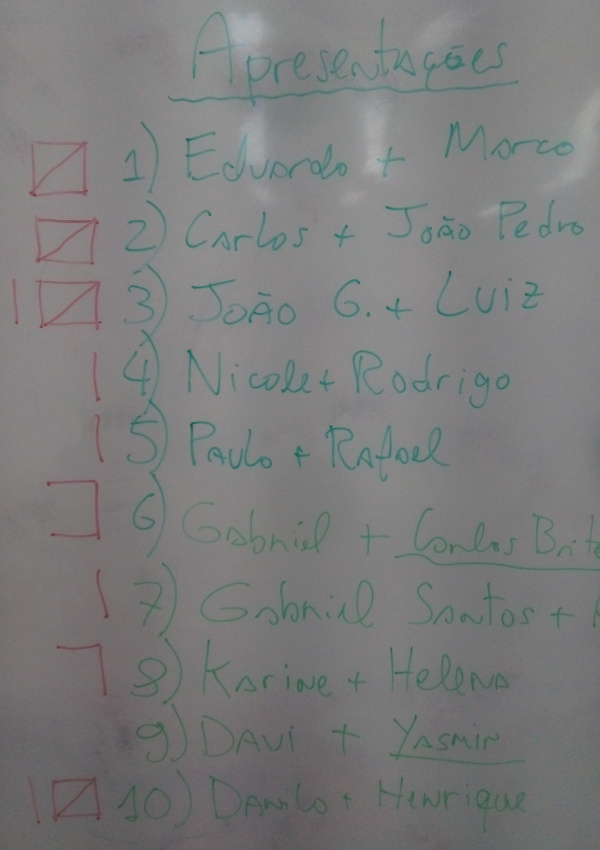 Apresentações
1) Eduardo + Marco
2) Carlos + João Pedro
3) João G. + Luiz
4) Nicole + Rodrigo
5) Paulo + Rafael
6) Gabriel + Carlos
7) Gabriel Santos +
8) Karine + Helena
9) Davi + Yasmin
10) Danilo + Henrique